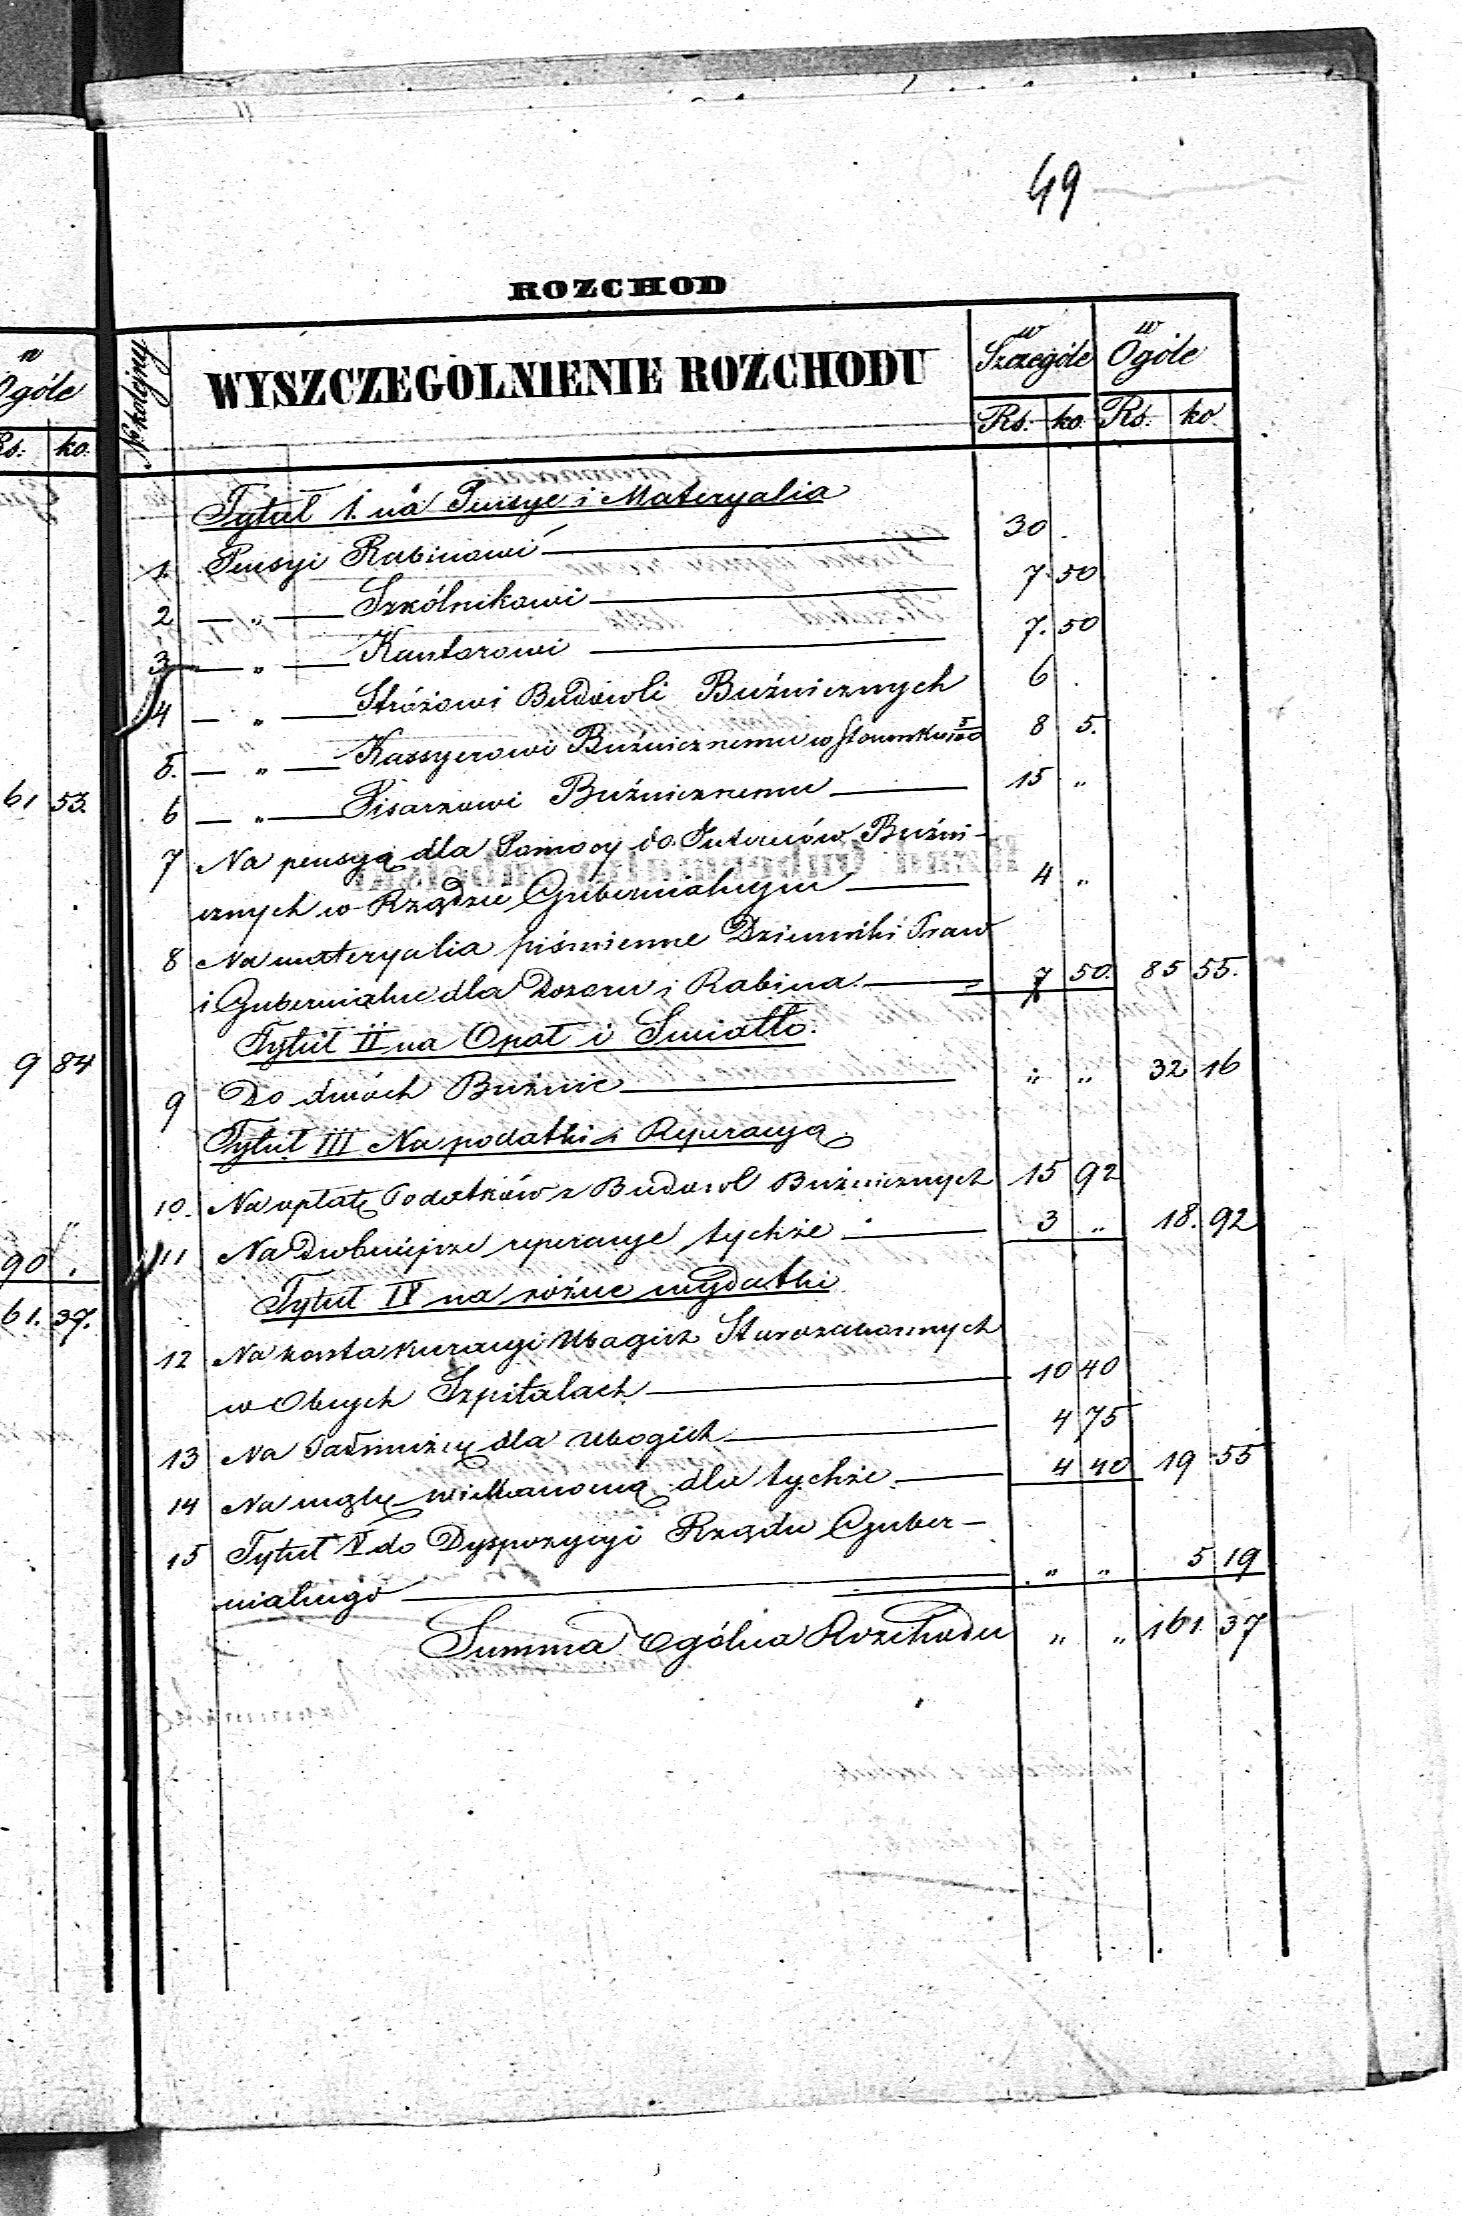 49
ROZCHOD
№ kolejny
WYSZCZEGÓLNIENIE ROZCHODU
w Szczególe
w Ogóle
Rs. ko. Rs. ko.
w
Ogóle
Rs. ko.
Tytuł 1. na Pensye i Materyalia
1. Pensyi Rabinowi 30 .
2 — „ — Szkólnikowi 7 50
3 — „ — Kantorowi 7. 50
4 — „ — Stróżowi Budowli Bużnicznych 6 .
5. — „ — Kassyerowi Bużnicznemu w stosunku 5/100 8 5.
6 — „ — Pisarzowi Bużnicznemu 15 „
7 Na pensyą dla Pomocy do Interesów Bużni-
cznych w Rządzie Gubernialnym 4 „
8 Na materyalia piśmienne Dzienniki Praw
i Gubernialne dla Dozoru i Rabina 7 50. 85 55.
Tytuł II na Opał i Swiatło.
9 Do dwóch Bużnic „ „ 32 16
Tytuł III Na podatki i Reperacyą.
10. Na opłatę Podatków z Budowl Bużnicznych 15 92
11 Na Drobniejsze reperacye tychże 3 „ 18. 92
Tytuł IV na różne wydatki
12 Na koszta kuracyi Ubogich Starozakonnych
w Obcych Szpitalach 10 40
13 Na Jałmużnę dla Ubogich 4 75
14 Na mąkę wielkanocną dla tychże 4 40 19 55
15 Tytuł V do Dyspozycyi Rządu Guber-
nialnego „ „ 5 19
Summa Ogólna Rozchodu „ „ 161. 37
61 53.
9 84
„
90 .
61. 37.